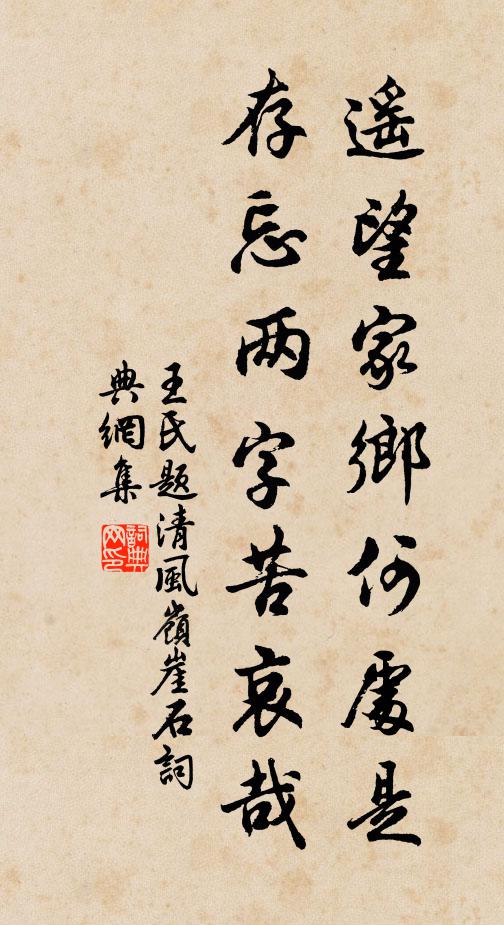 遥望家鄉何處是
存忘两字苦哀哉
王氏题清風嶺崖石詞
典網集
詞典網印